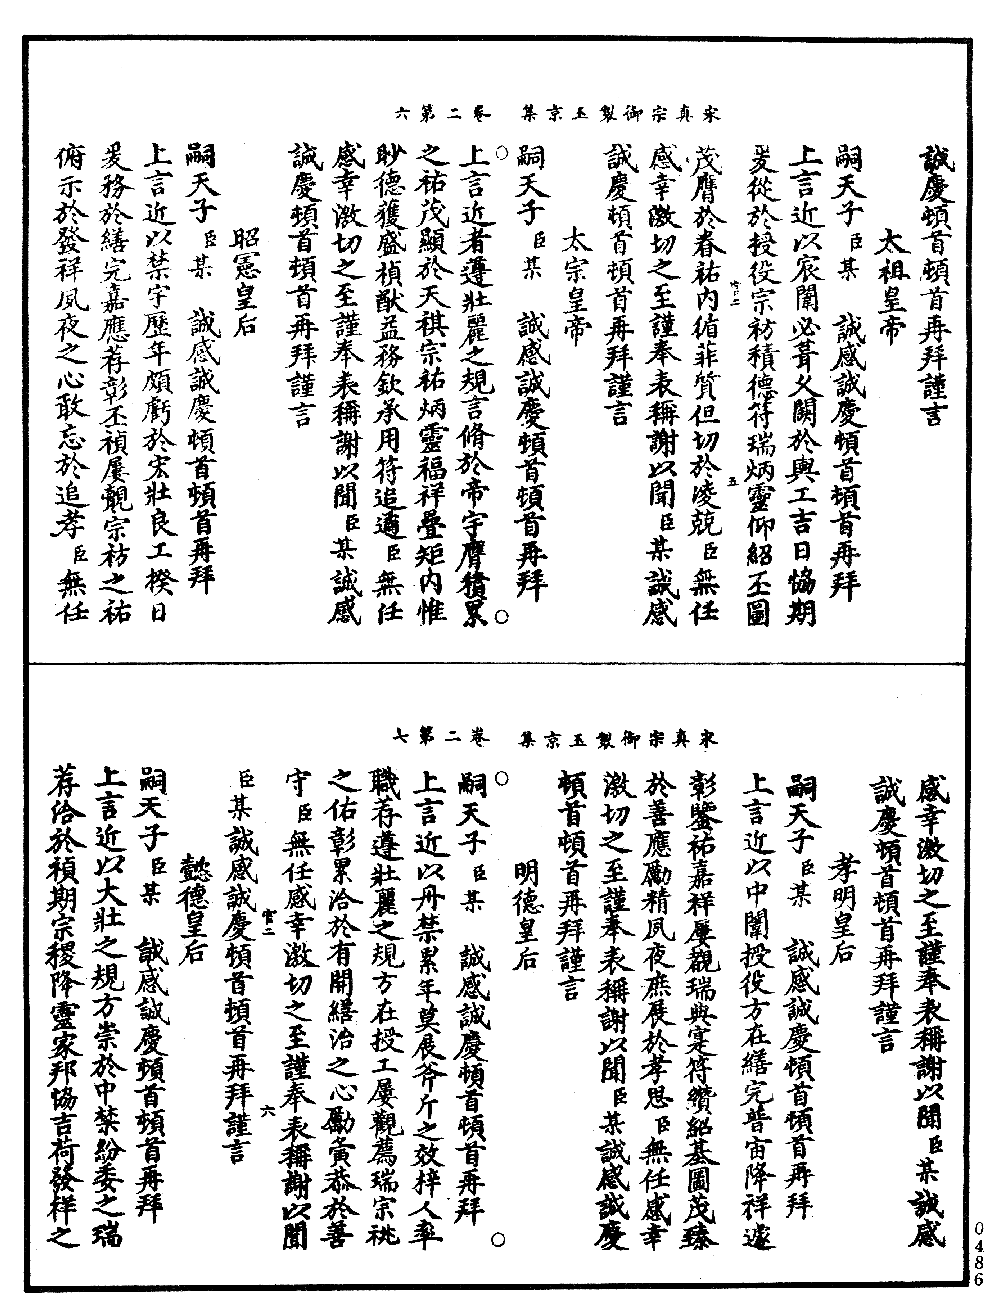 宋真宗御製玉京集　卷二第六
誠慶頓首頓首再拜謹言
太祖皇帝
嗣天子臣某　誠感誠慶頓首頓首再拜
上言近以宸闈必葺久闕於興工吉日協期
爰從於授役宗祊積德符瑞炳靈仰紹丕圖
茂膺於眷祐內循菲質但切於凌兢臣無任
感幸激切之至謹奉表稱謝以聞臣某誠感
誠慶頓首頓首再拜謹言
太宗皇帝
嗣天子臣某　誠感誠慶頓首頓首再拜
上言近者遵壯麗之規言脩於帝宇膺積累
之祐茂顯於天祺宗祐炳靈福祥疊矩內惟
眇德獲盛禎猷益務欽承用符追遹臣無任
感幸激切之至謹奉表稱謝以聞臣某誠感
誠慶頓首頓首再拜謹言
昭憲皇后
嗣天子臣某　誠感誠慶頓首頓首再拜
上言近以禁宇歷年頗虧於宏壯良工揆日
爰務於繕完嘉應荐彰丕禎屢覿宗祊之祐
俯示於發祥夙夜之心敢忘於追孝臣無任
宋真宗御製玉京集　卷二第七
感幸激切之至謹奉表稱謝以聞臣某誠感
誠慶頓首頓首再拜謹言
孝明皇后
嗣天子臣某　誠感誠慶頓首頓首再拜
上言近以中闈授役方在繕完普宙降祥遽
彰鑒祐嘉祥屢覿瑞典寔符纘紹基圖茂臻
於善應勵精夙夜庶展於孝思臣無任感幸
激切之至謹奉表稱謝以聞臣某誠感誠慶
頓首頓首再拜謹言
明德皇后
嗣天子臣某　誠感誠慶頓首頓首再拜
上言近以丹禁累年莫展斧斤之效梓人率
職荐遵壯麗之規方在授工屢觀薦瑞宗祧
之佑彰累洽於有開繕治之心勵寅恭於善
守臣無任感幸激切之至謹奉表稱謝以聞
臣某誠感誠慶頓首頓首再拜謹言
懿德皇后
嗣天子臣某　誠感誠慶頓首頓首再拜
上言近以大壯之規方崇於中禁紛委之瑞
荐洽於禎期宗稷降靈家邦協吉荷發祥之
0486